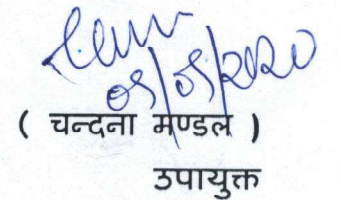 05/05/2020
( चन्दना मण्डल )
उपायुक्त